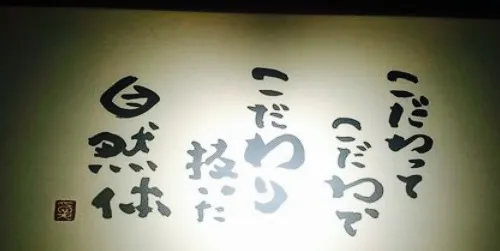 こだわって
こだわって、
こだわり
抜いた
自然体